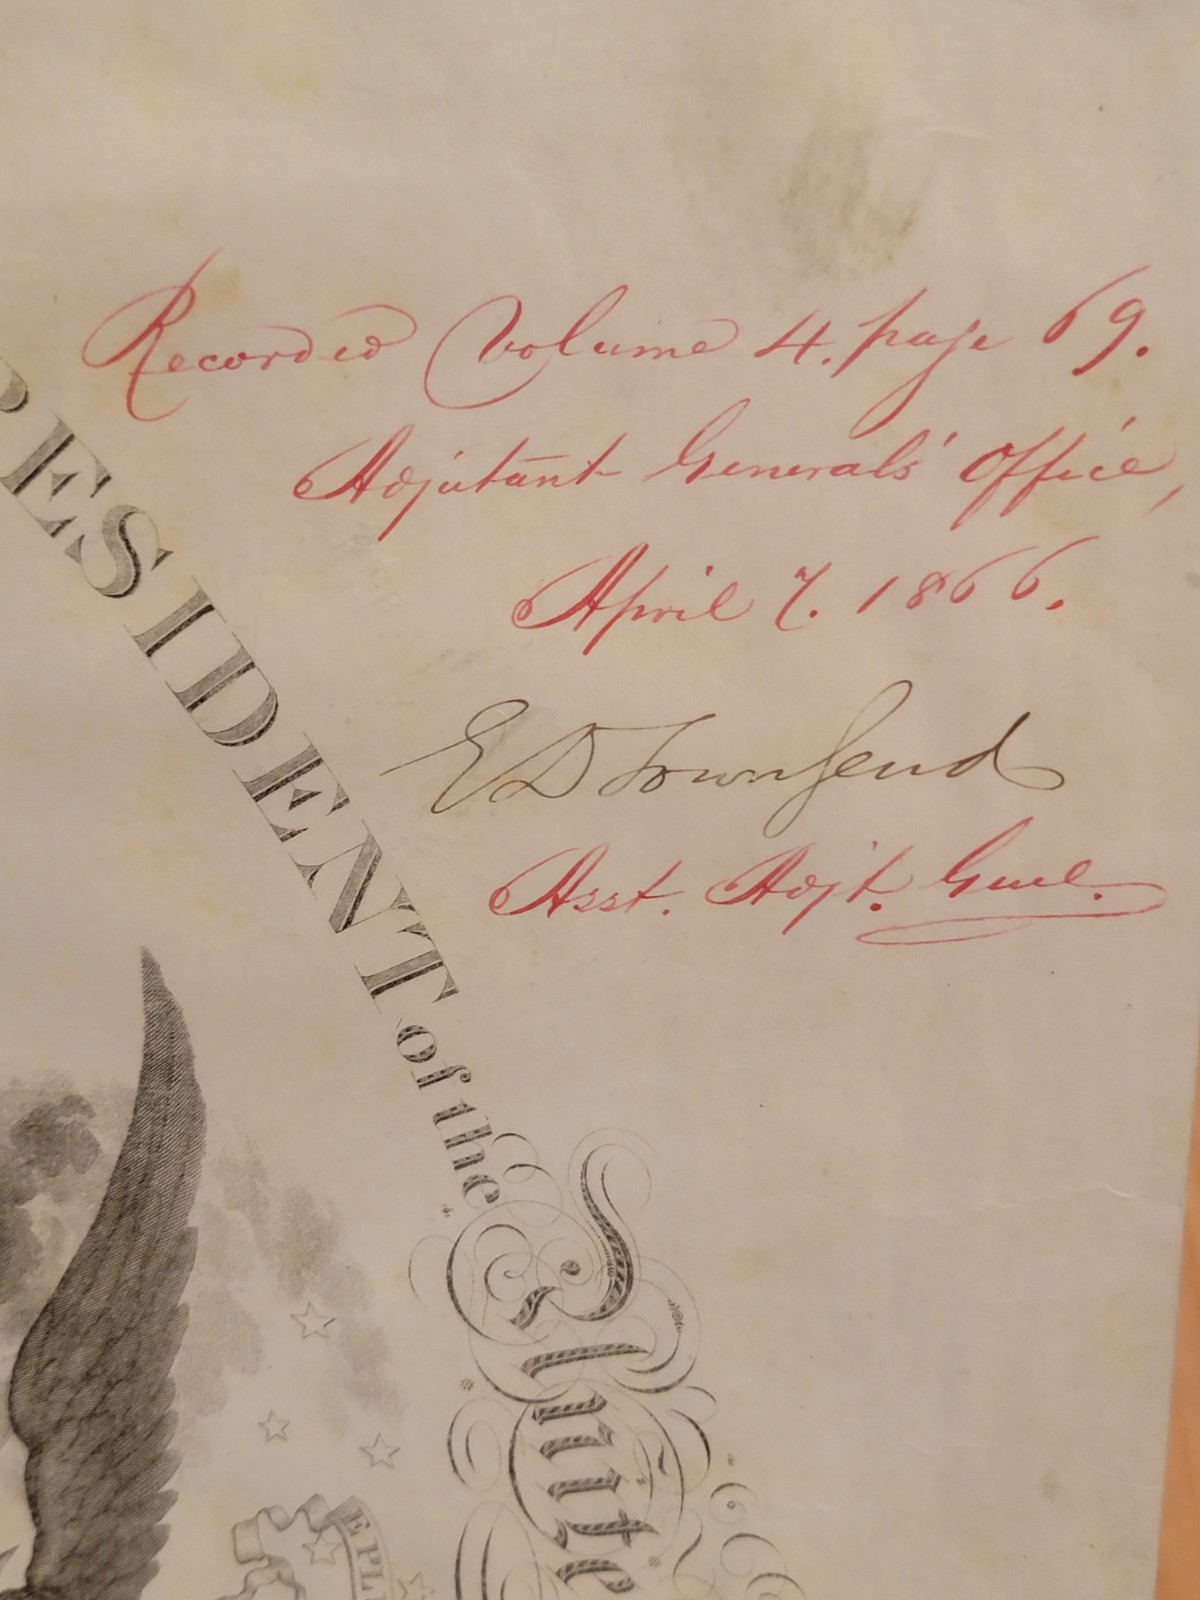 Recorded Volume 4. page 69.
Adjutant Generals' Office,
April 7. 1866.
E D Townsend
Asst. Adjt. Genl.
RESIDENT of the
Unite
E PL